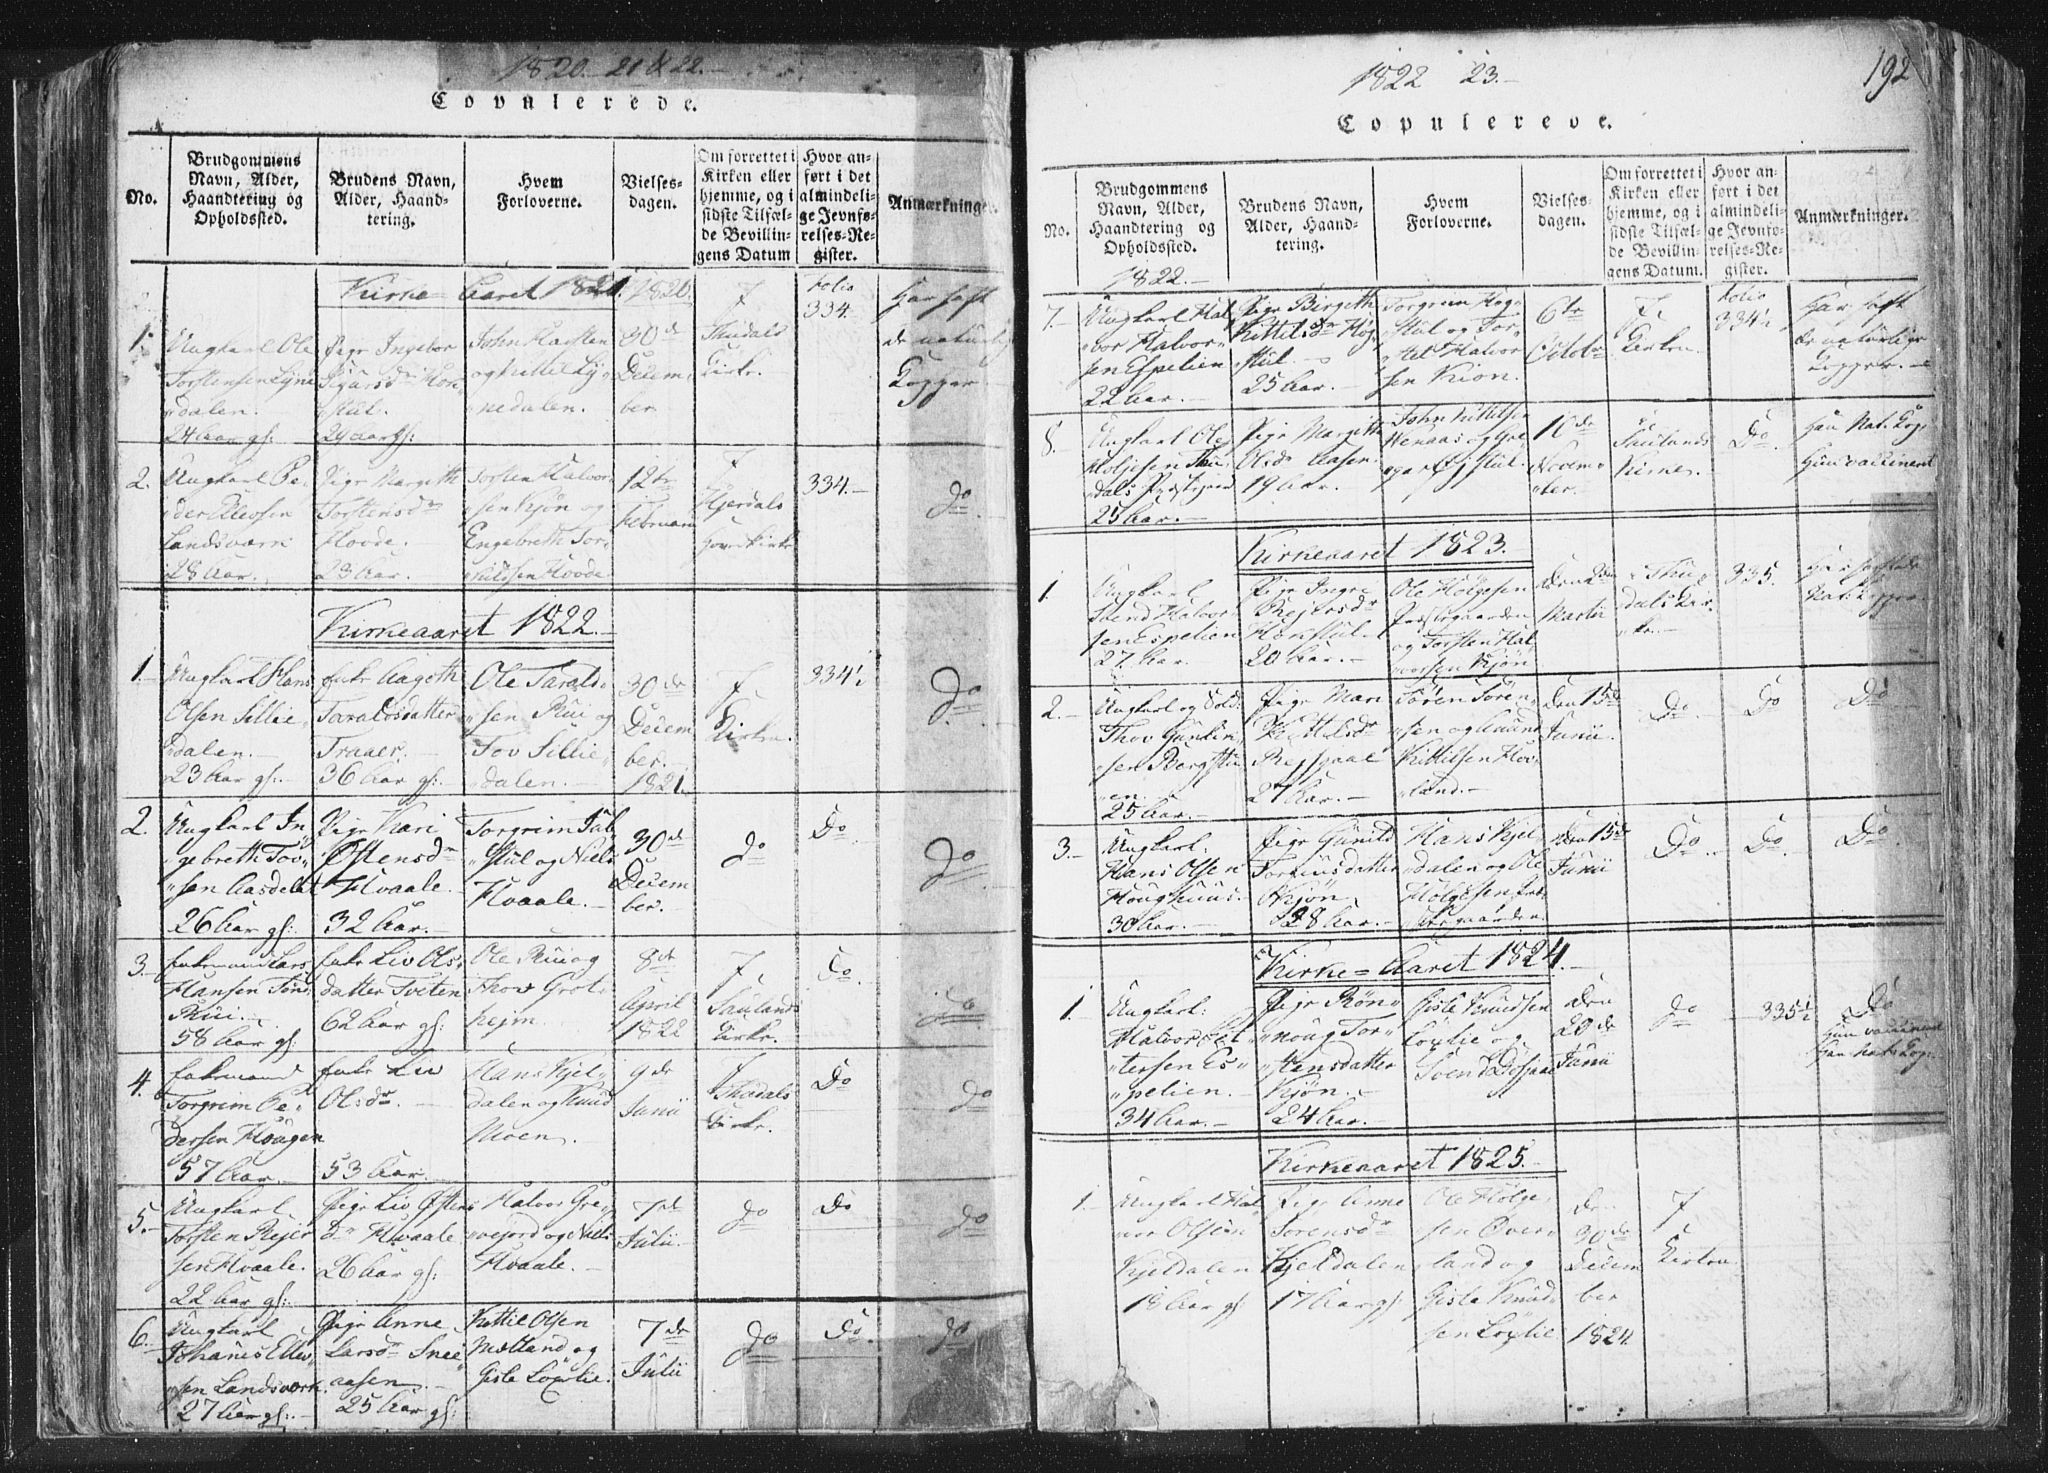 1820. 21 & 22.
Copulerede.
No.
Brudgommens Navn, Alder, Haandtering og Opholdssted.
Brudens Navn, Alder, Haandtering.
Hvem Forloverne.
Vielsesdagen.
Om forrettet i Kirken eller hjemme, og i sidste Tilfælde Bevillingens Datum
Hvor anført i det almindelige Jevnførelses-Register.
Anmærkninger.
Kirke-Aaret 1821. 1820.
1. Ungkarl Ole
Torstensen Lyne
dalen.
24 Aar gl:
Pige Ingebor
Sigursdr
stul.
29 Aar gl:
John
og Kittil Ly
nedalen.
30de
Decem
ber.
I
Thudals
Kirke.
Folio
334.
Har haft
de naturl.
Kopper.
2. Ungkarl Pe
der Ellevsen
Landsværk
28 Aar.
Pige Margeth
Torstensdr
Hovde.
23 Aar.
Torsten Halvor
sen Kjøn og
Engebreth Tor
kildsen Hovde
12te
Februarii
I
Hjerdals
Hovetkirke
334.
do
Kirkeaaret 1822.
1. Ungkarl Hans
Olsen Lillie
dalen.
23 Aar gl:
Enke Aagoth
Taraldsdatter
Traaer.
36 Aar gl:
Ole Tarald
sen Rui og
Tov Lillie
dalen.
30de
Decem
ber.
1821.
I
Kirken.
334½
do
2. Ungkarl In
gebreth Tov
sen Aasdelet
26 Aar gl:
Pige Kari
Østensdr
Hvaale.
32 Aar.
Torgrim Jul
stul og Niels
Hvaale.
30de
Decem
ber.
do
Do
do
3. Enkemand Lars
Hansen
Rui.
58 Aar gl:
Enke Liv Ols
datter Tveten
62 Aar gl:
Ole Rui og
Thov Grot
hejm.
8de
April
1822
I
Saulands
Kirke.
Do
do
4. Enkemand
Torgrim Pe
dersen Haugen
57 Aar.
Enke Liv
Olsdr.
53 Aar
Hans Kjel
dalen og Knud
Moen.
9de
Junii
I
Thudals
Kirke.
Do
do
5. Ungkarl
Torsten Rejer
sen Hvaale.
22 Aar gl:
Pige Liv Østens
Dr Hvaale
26 Aar gl:
Halvor Gre
vejord og Niels
Hvaale.
7de
Julii.
do
Do
do
6. Ungkarl
Johanes Ellev
sen Landsværk.
27 Aar gl:
Pige Anne
Larsdr Snee
aasen
25 Aar gl:
Kittil Olsen
Mælland og
Gisle Løxlie.
7de
Julii
do
Do.
do
192
1822 23.
Copulerede.
No.
Brudgommens Navn, Alder, Haandtering og Opholdssted.
Brudens Navn, Alder, Haandtering.
Hvem Forloverne.
Vielsesdagen.
Om forrettet i Kirken eller hjemme, og i sidste Tilfælde Bevillingens Datum.
Hvor anført i det almindelige Jevnførelses-Register.
Anmærkninger.
1822.
7. Ungkarl Hal
vor Halvor
sen Espelien
22 Aar.
Pige Birgeth
Kittilsdr Høg
stul.
25 Aar.
Torgrim Høg
stul og Tor
stel Halvor
sen Kion.
6te
Octobr
I
Kirken
Folio
334½
Har haft
de naturlige
Kopper.
8. Ungkarl Ole
Holjesen Thu
dals Præstegaar
25 Aar.
Pige Margith
Olsdr Aasen
19 Aar.
John Kittilsen
Wenaas og Gre
gar Høgstul.
10de
Novem
ber.
I
Saulands
Kirke.
Do
Han Nat. Kop.
Hun vaccineret
Kirkeaaret 1823.
1. Ungkarl
Svend Halvor
sen Espelien
27 Aar.
Pige Ingre
Rejersdr
20 Aar.
Ole Holgesen
Præstegaarden
og Torsten Hal
vorsen Kjøn
Den 2den
Martii
i Thu
dals Kir
ke.
335.
2. Ungkarl og Sold.
Thov Gunlei
sen Bergstu
en.
25 Aar.
Pige Mari
Kittilsdr
Rejspaae
27 Aar.
Sören Sören
sen og
Kittilsen Hov
land.
Den 15de
Junii.
Do
Do
Do
3. Ungkarl:
Hans Olsen
Houghuus.
30 Aar.
Pige Gunild
datter
Kjøn.
28 Aar.
Hans Kjel
dalen og Ole
Holgesen Præ
stegaarden.
Den 15de
Junii
Do
Do.
Do
Kirke-Aaret 1824.
1. Ungkarl:
Halvor
tersen Es
pelien.
34 Aar.
Pige Røn
noug Tor
stensdatter
Kjøn.
24 Aar.
Gisle Knudsen
Löxlie og
Svend
Den
20de
Junii
do
335½
Do
Hun vaccineret
Han nat. Kop.
Kirkeaaret 1825.
1. Ungkarl Hal
vor Olsen
Kjeldalen
18 Aar gl
Pige Anne
Sorensdr
Kjeldalen
17 Aar gl.
Ole Holge
sen Över
land og
Gisle Knud
sen Löxlie
den
30de
Decem
ber
1824.
I
Kirken